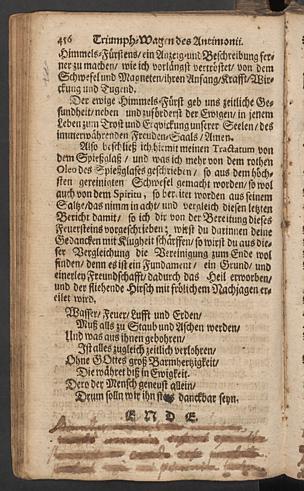 456 Triumph-Wagen des Antimonii.
Himmels-Fürstens/ ein Anzeig und Beschreibung fer-
ner zu machen/ wie ich vorlängst vertröstet/ von dem
Schwefel und Magneten/ ihren Anfang/ Krafft/ Wir-
ckung und Tugend.
Der ewige Himmels-Fürst geb uns zeitliche Ge-
sundheit/ neben und zuförderst der Ewigen/ in jenem
Leben zum Trost und Erqvickung unsrer Seelen/ des
immerwährenden Freuden-Saals/ Amen.
Also beschließ ich hiermit meinen Tractatum von
dem Spießglaß/ und was ich mehr von dem rothen
Oleo des Spießglases geschrieben/ so aus dem höch-
sten gereinigten Schwefel gemacht worden/ so wol
auch von dem Spiritu, so bereitet worden aus seinem
Saltze/ das nimm in acht/ und vergleich diesen letzten
Bericht damit/ so ich dir von der Bereitung dieses
Feuersteins vorgeschrieben; wirst du darinnen deine
Gedancken mit Klugheit schärffen/ so wirst du aus die-
ser Vergleichung die Vereinigung zum Ende wol
finden/ denn es ist ein Fundament/ ein Grund/ und
einerley Freundschafft/ dadurch das Heil erworben/
und der fliehende Hirsch mit frölichem Nachjagen er-
eilet wird.
Wasser/ Feuer/ Lufft und Erden/
Muß alls zu Staub und Aschen werden/
Und was aus ihnen gebohren/
Ist alles zugleich zeitlich verlohren/
Ohne GOttes groß Barmhertzigkeit/
Die währet biß in Ewigkeit.
Dero der Mensch geneust allein/
Drum solln wir ihm stets danckbar seyn.
ENDE